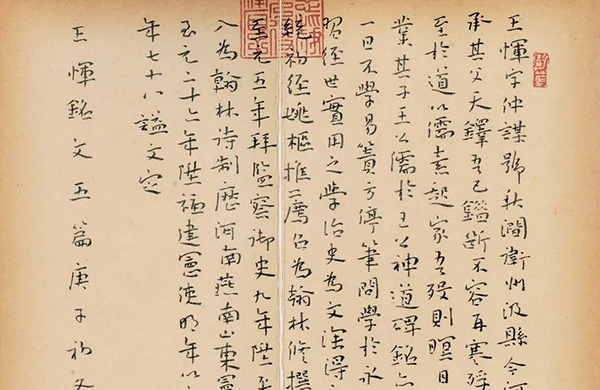 王惲字仲謀號秋澗衛州汲縣今河
承其父天鐸吾已鑑斷不容再寒
至於道以儒素起家吾歿則瞑目
業其子王公儒於王公神道碑銘
一日不學易簀方停筆問學於永
習經世實用之學治史為文深得
統初經姚樞推薦召為翰林修撰
至元五年拜監察御史九年陞至
八為翰林待制歷河南燕南山東憲
至元二十六年陞福建憲使明年以
年七十八謚文定
王惲銘文五篇庚子初冬